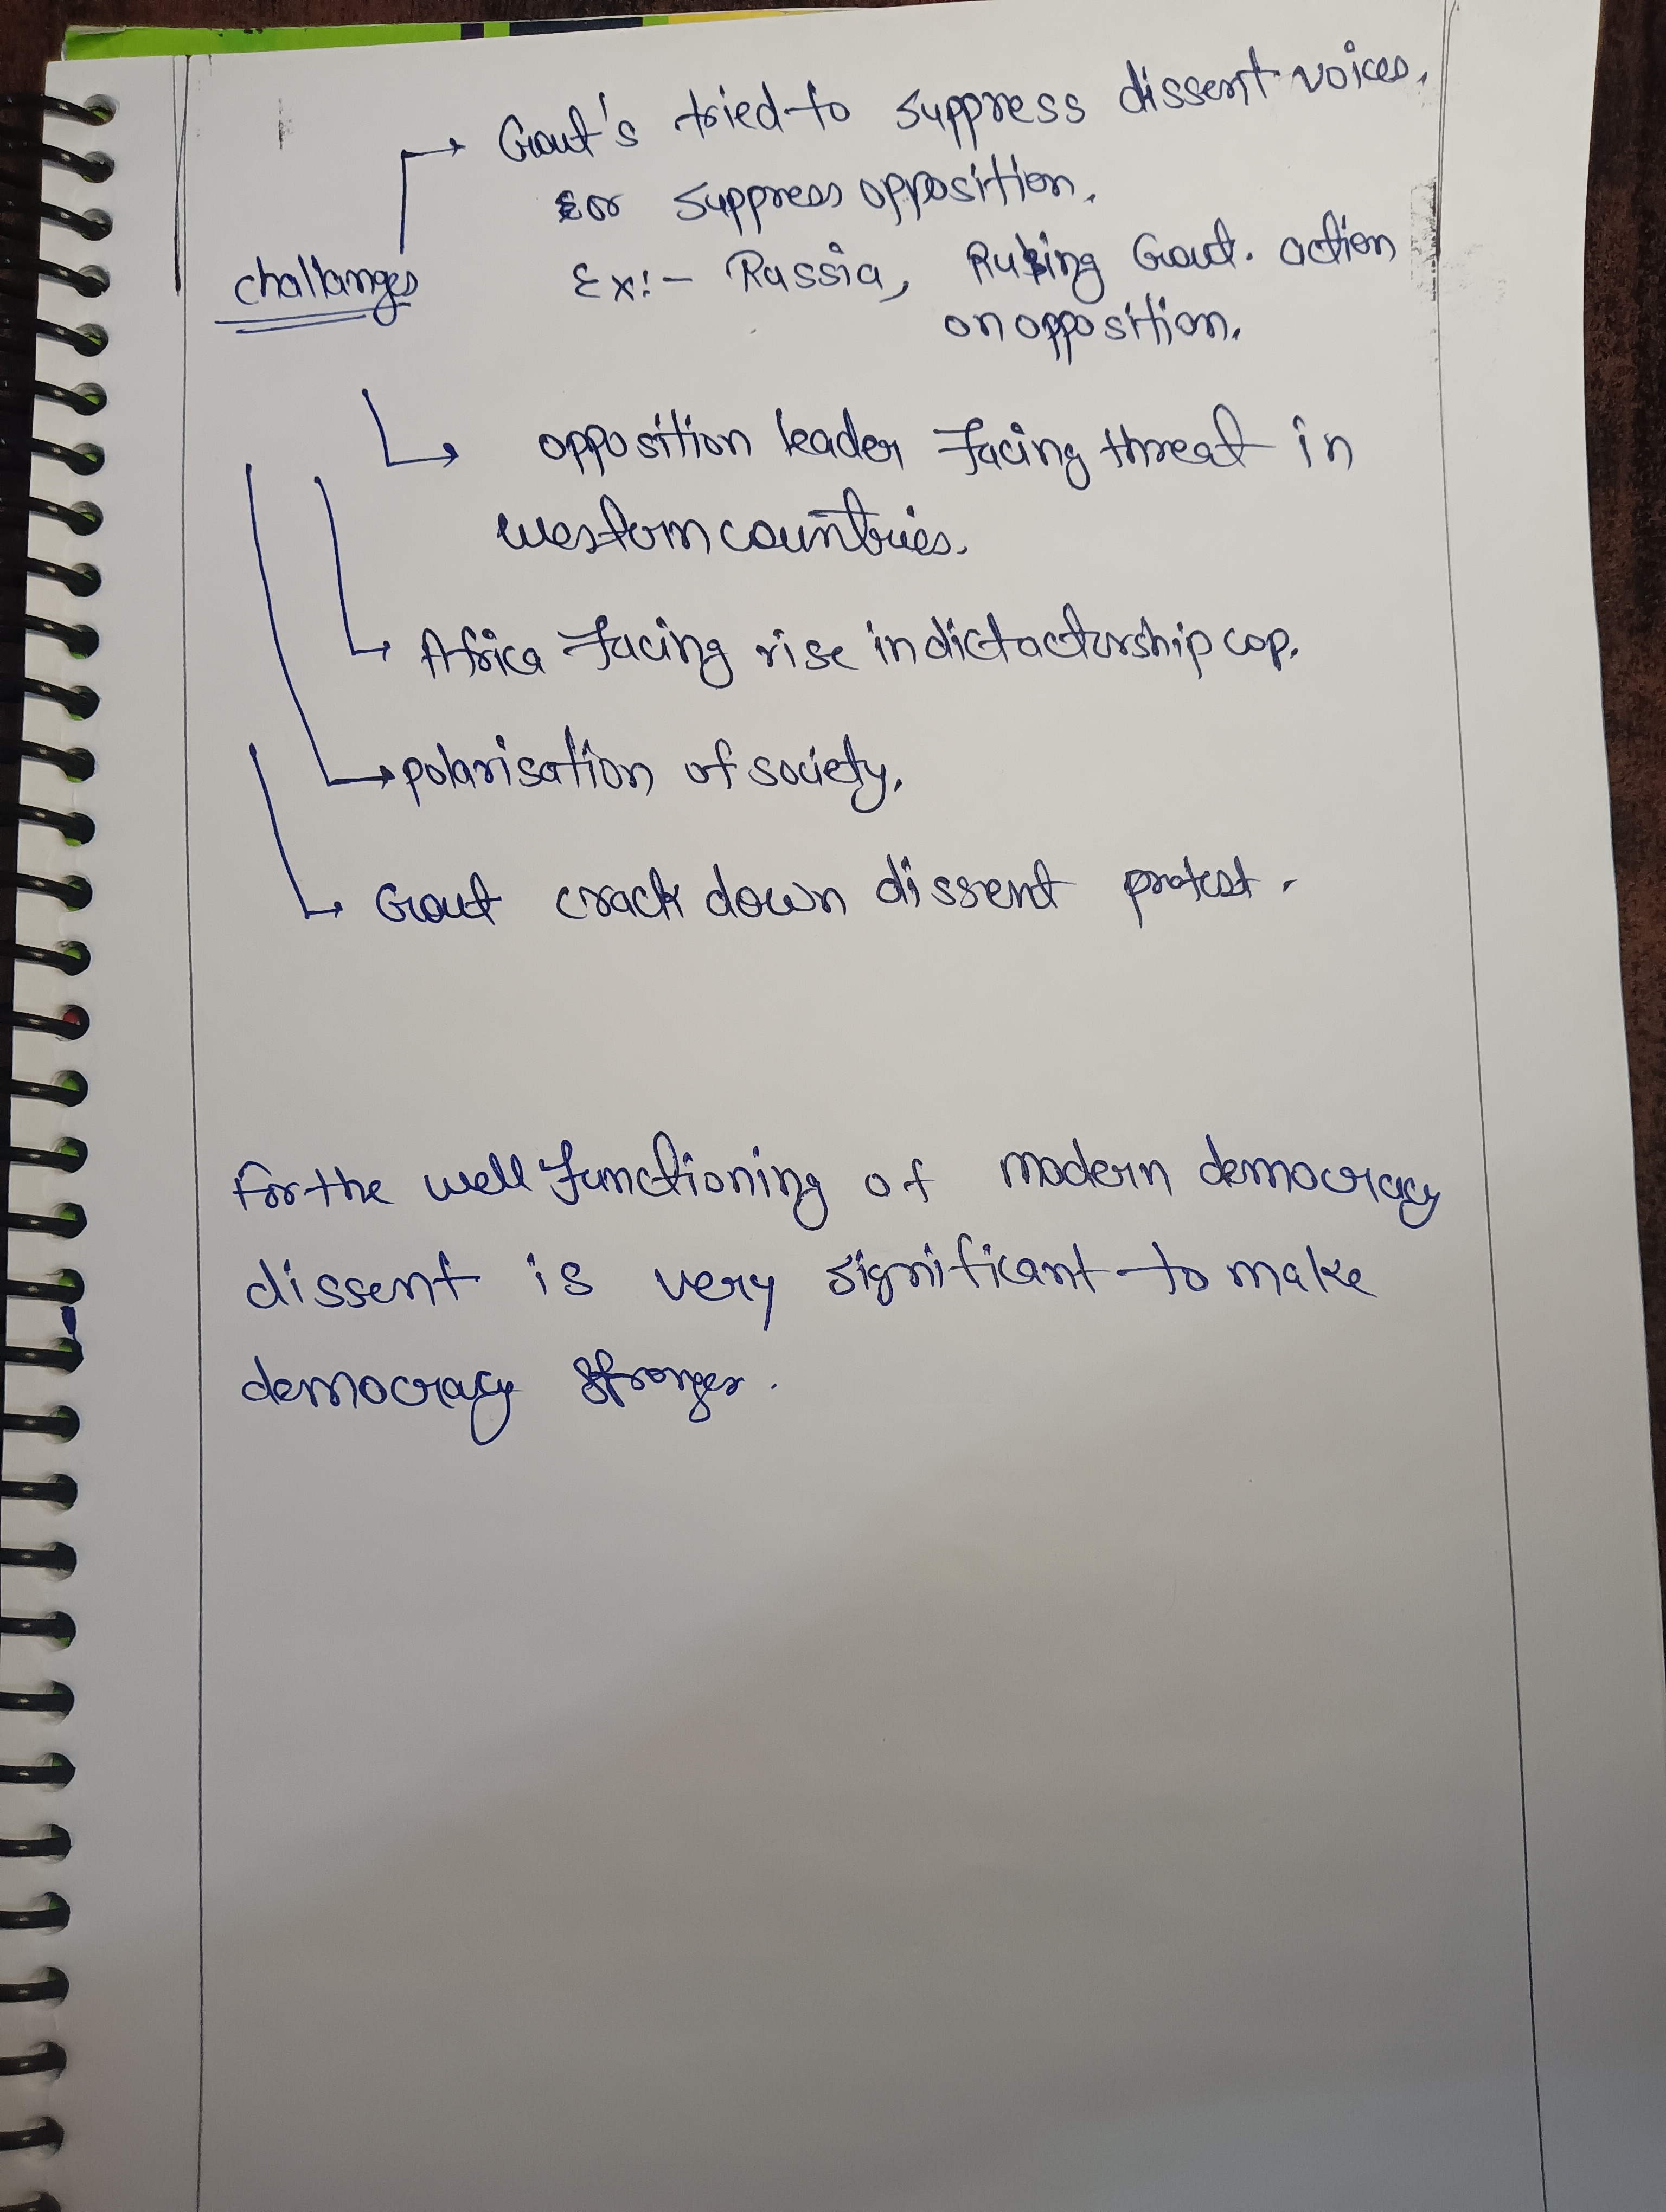 Govt's tried to suppress dissent voices,
or suppress opposition.
challanges
Ex:- Russia, Ruling Govt. action
on opposition.
opposition leader facing threat in
western countries.
Africa facing rise in dictactorship cop.
polarisation of society.
Govt crack down dissent protest.
For the well functioning of modern democracy
dissent is very significant to make
democracy stronger.